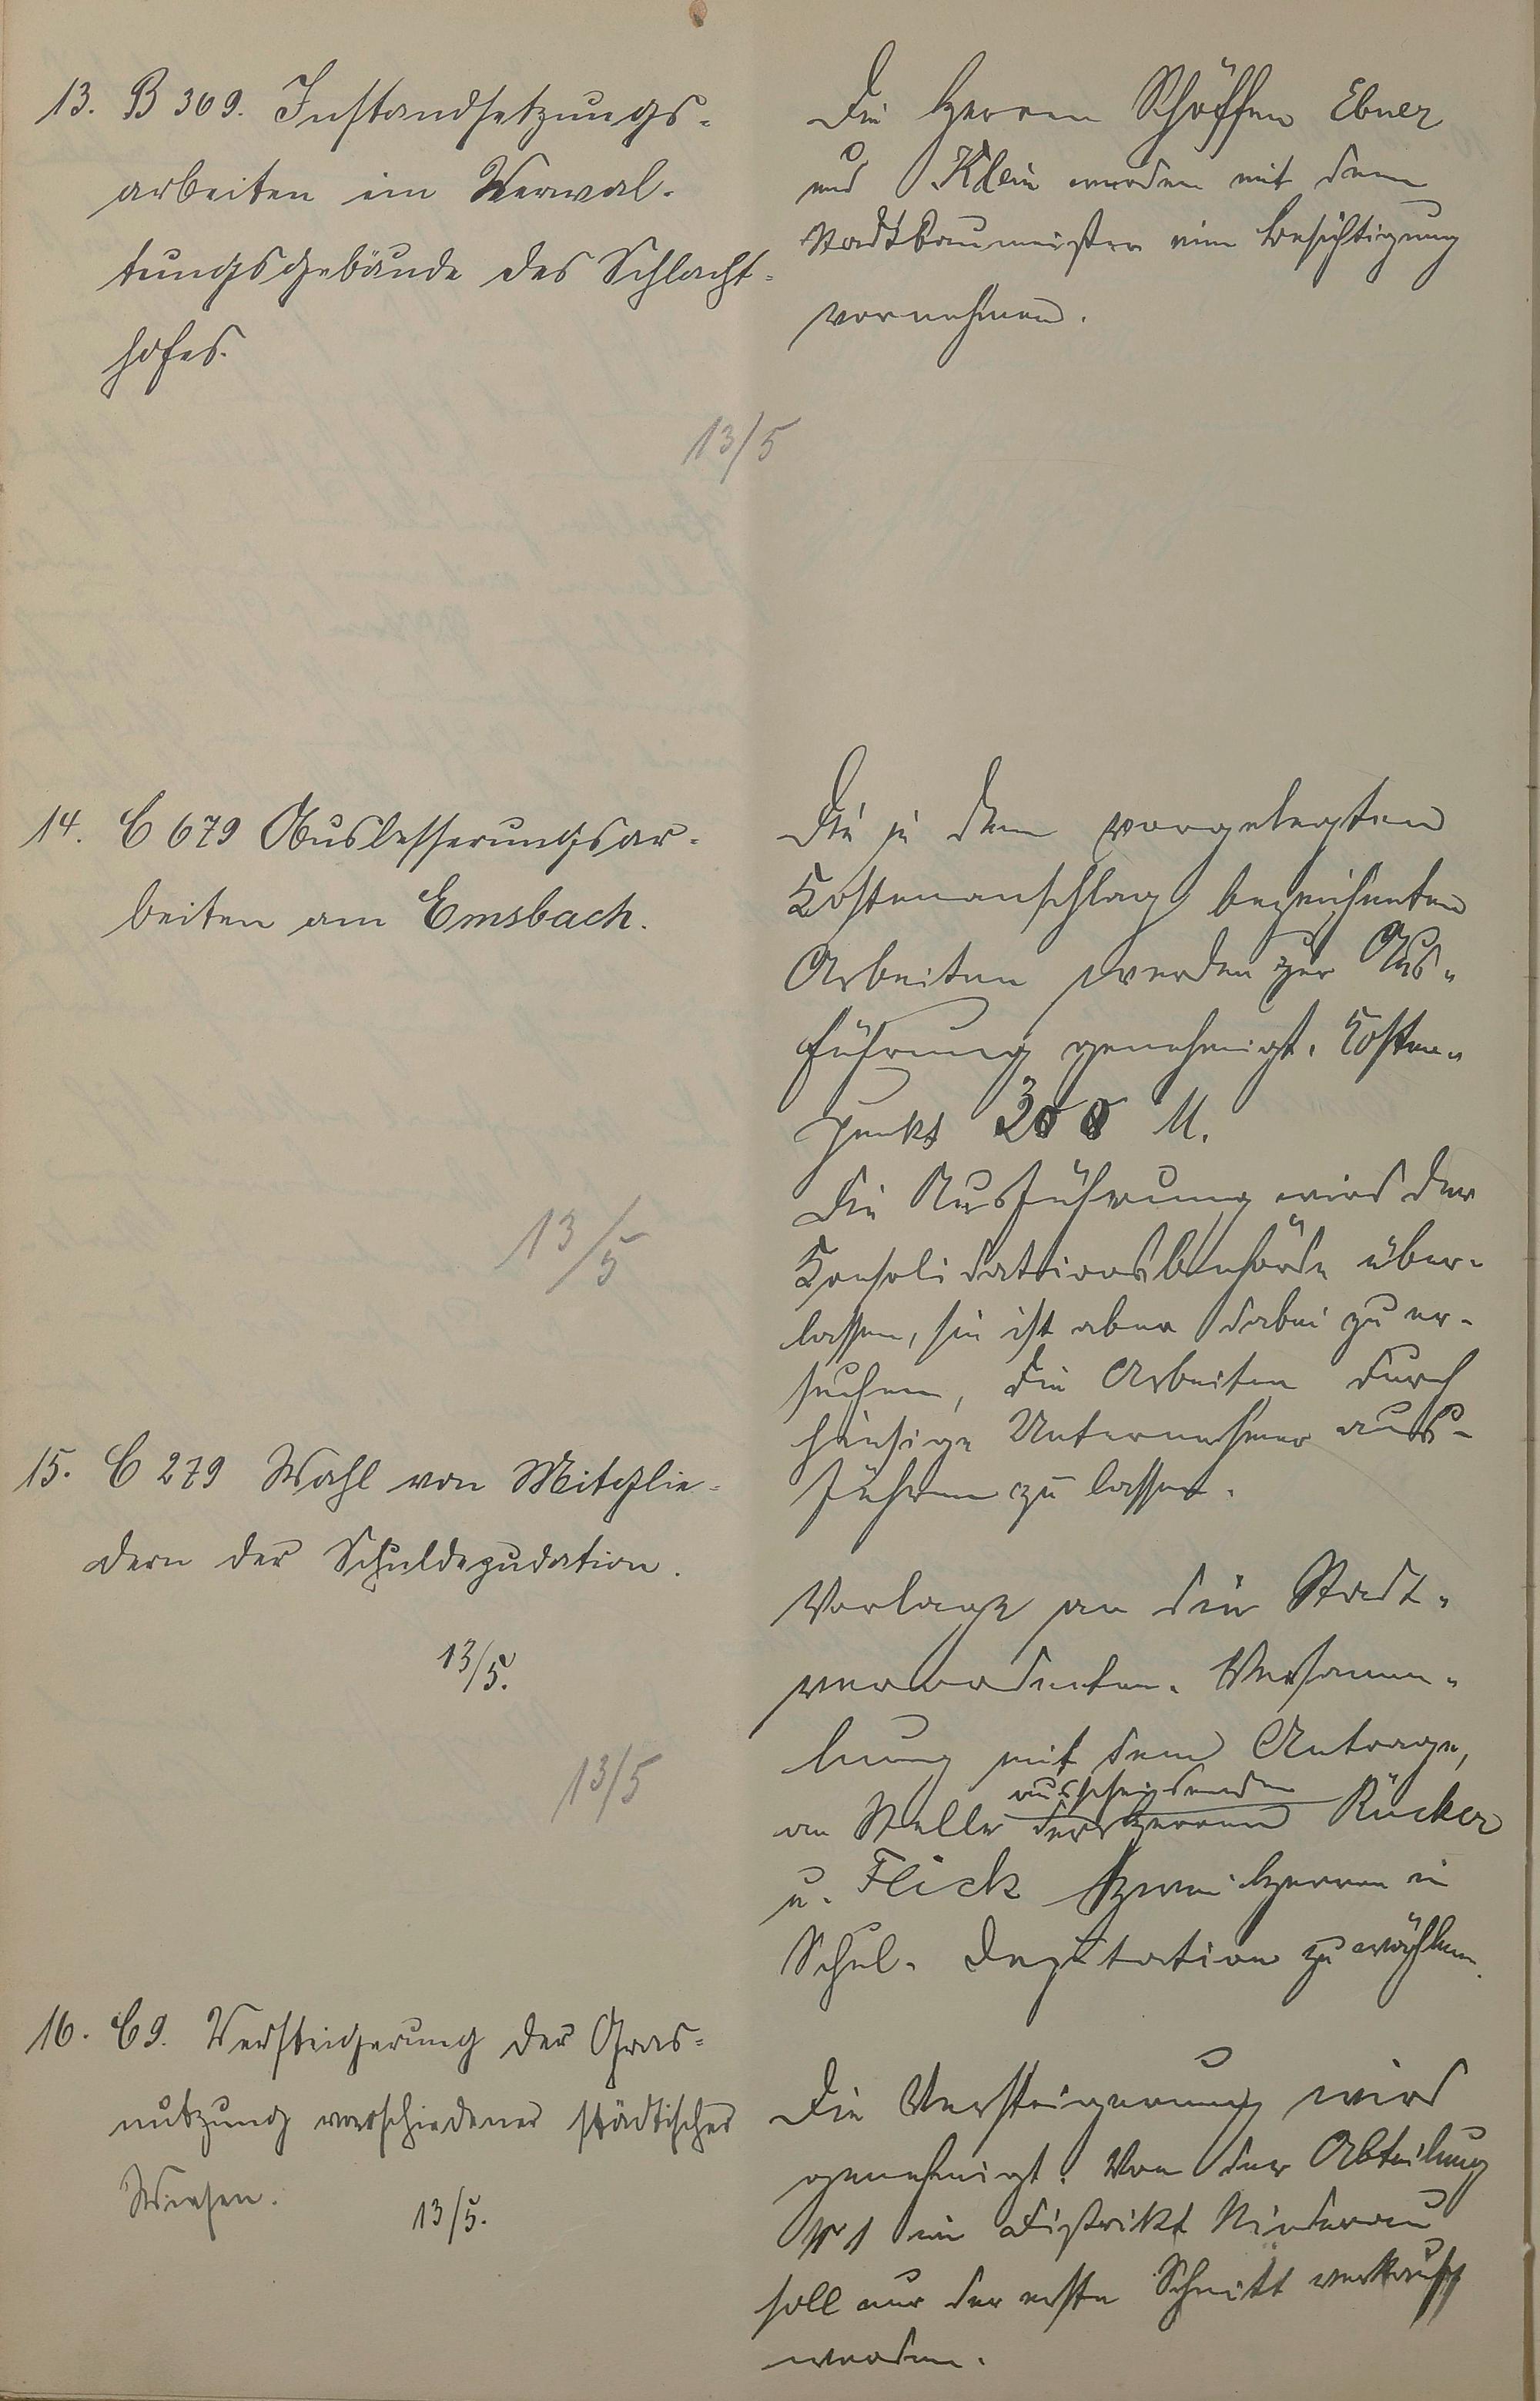 13. B 309. Instandsetzungs-
arbeiten im Verwal-
tungsgebäude des Schlacht-
hofes.
Die Herren Schöffen Ebner
und Klein werden mit dem
Stadtbaumeister eine Besichtigung
vornehmen.
13/5
14. C 679 Ausbesserungsar-
beiten am Emsbach.
Die in dem vorgelegten
Kostenanschlag bezeichneten
Arbeiten werden zur Aus-
führung genehmigt. Kosten-
punkt 300 M.
Die Ausführung wird der
Konsolidationsbehörde über-
lassen, sie ist aber dabei zu er-
suchen, die Arbeiten durch
hiesige Unternehmer aus-
führen zu lassen.
13/5
15. C 279 Wahl von Mitglie-
dern der Schuldepudation.
13/5.
13/5
Vorlage an die Stadt-
verordneten-Versamm-
lung mit dem Antrage,
an Stelle der ausscheidenden Herren Rücker
u. Flick zwei Herren in
Schul-Deputation zu wählen.
16. C 9. Versteigerung der Gras-
nutzung verschiedener städtischer
Wiesen.
13/5.
Die Versteigerung wird
genehmigt. Von der Abteilung
Nr 1 im Distrikt Niederau
soll nur der erste Schnitt verkauft
werden.